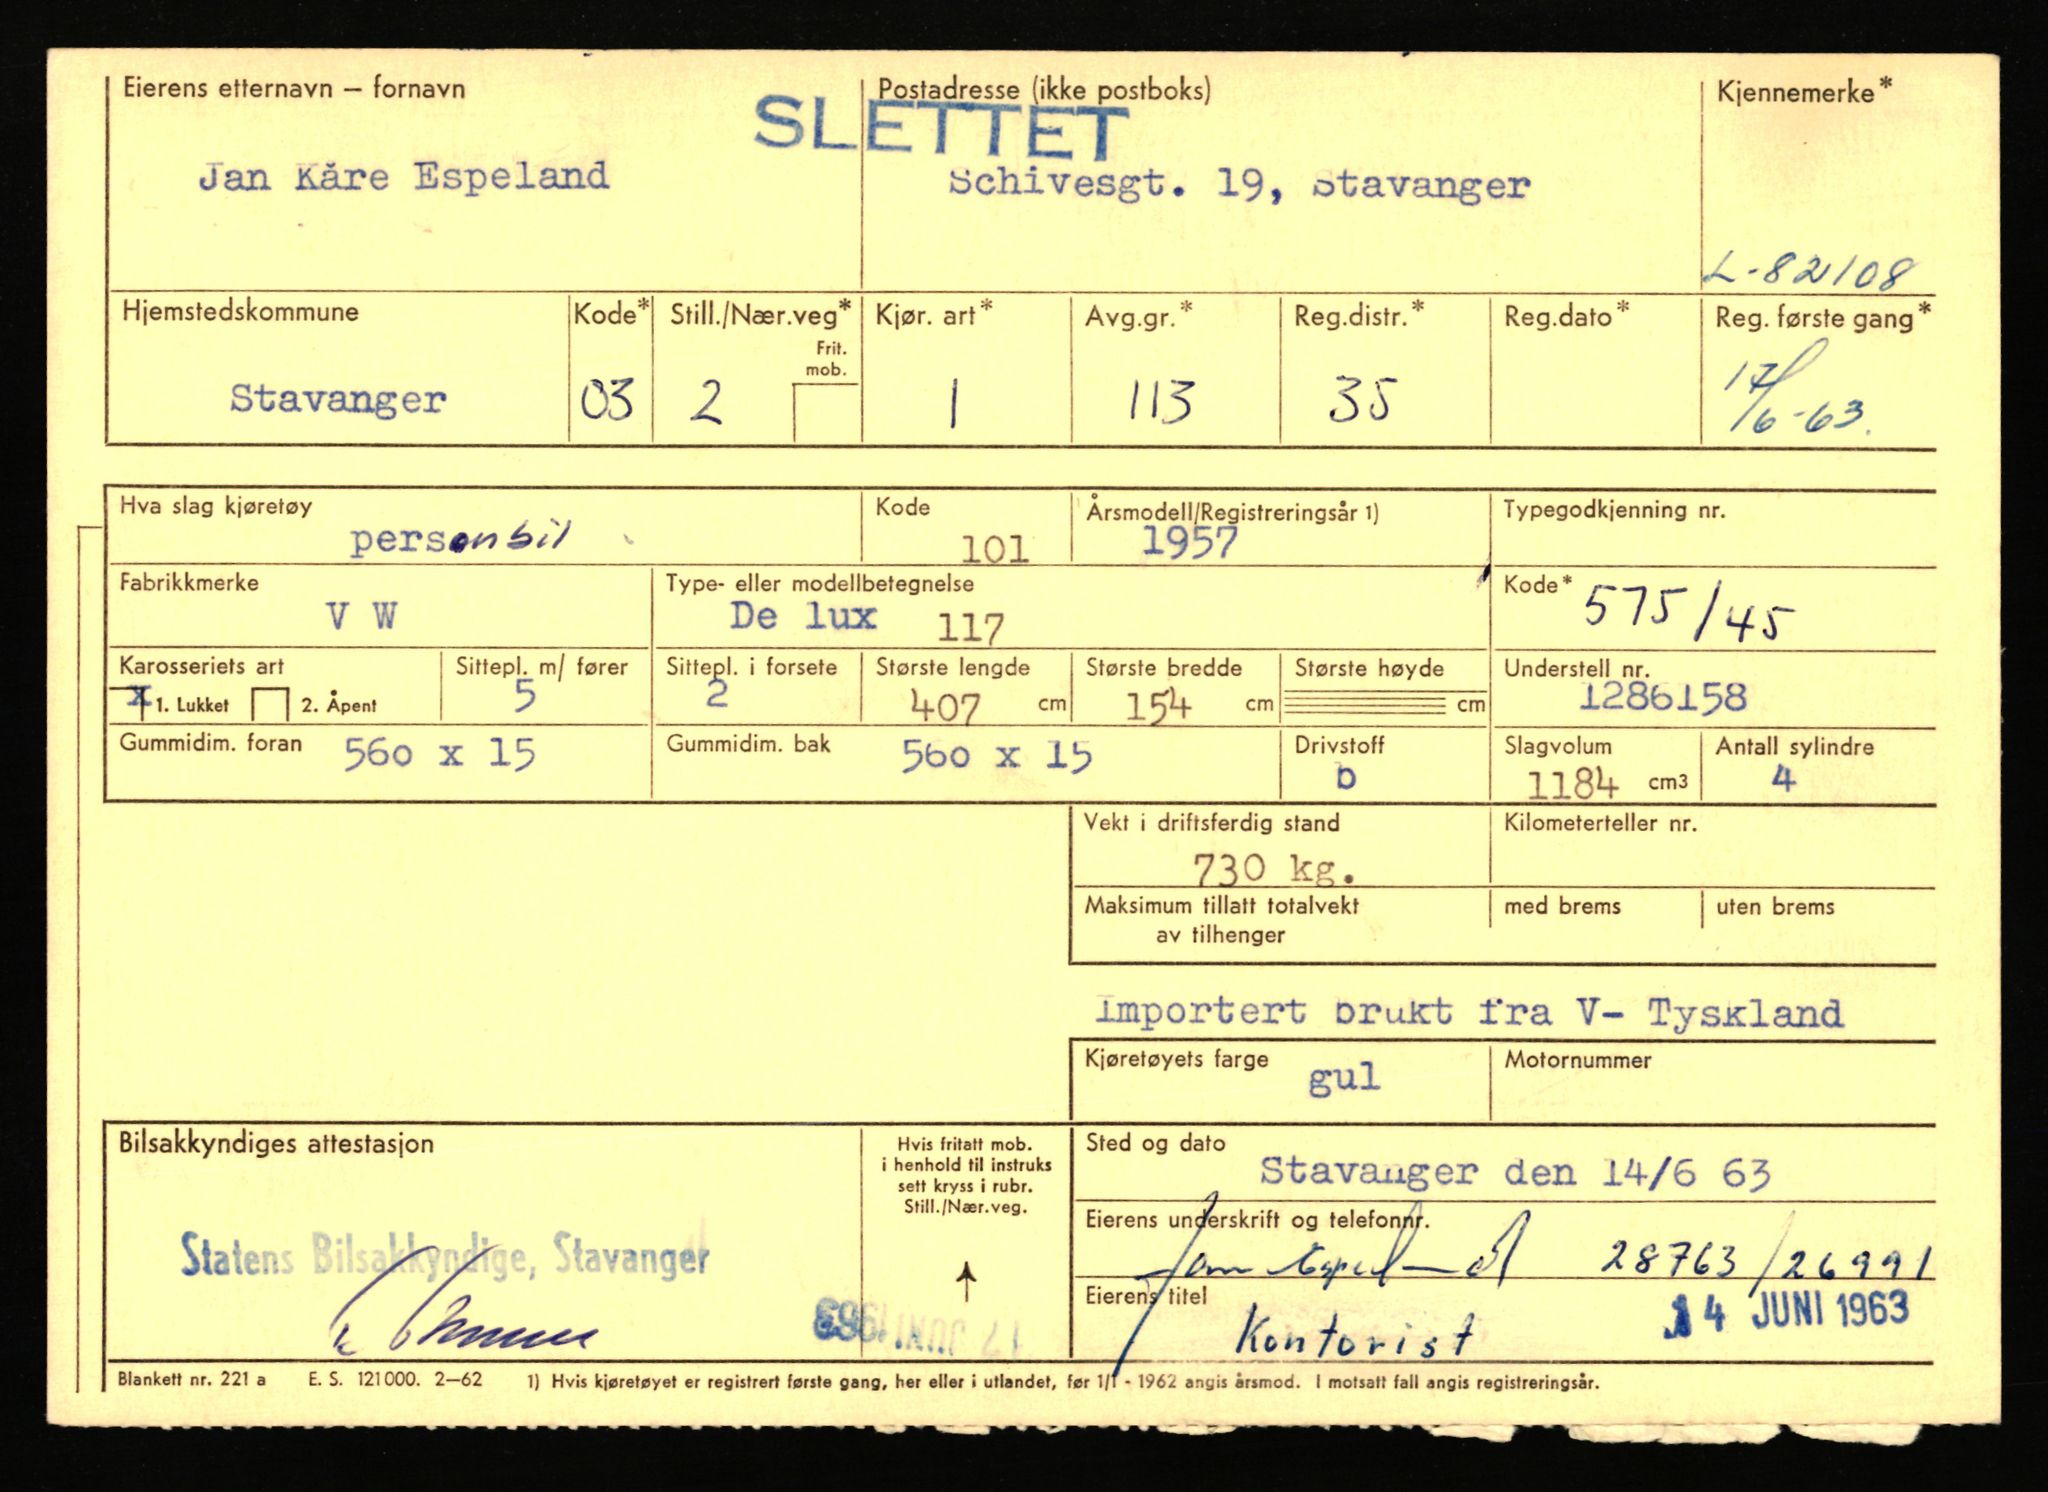 Eierens etternavn – fornavn
Postadresse (ikke postboks)
Kjennemerke*
SLETTET
Jan Kåre Espeland
Schivesgt. 19, Stavanger
L-82108
Hjemstedskommune
Kode*
Still./Nær.veg*
Kjør. art*
Avg.gr.*
Reg.distr.*
Reg.dato*
Reg. første gang*
Frit.
mob.
Stavanger
03
2
1
113
35
17/6-63.
Hva slag kjøretøy
Kode
Årsmodell/Registreringsår 1)
Typegodkjenning nr.
personbil
101
1957
Fabrikkmerke
Type- eller modellbetegnelse
Kode*
V W
De lux 117
575/45
Karosseriets art
Sittepl. m/ fører
Sittepl. i forsete
Største lengde
Største bredde
Største høyde
Understell nr.
x 1. Lukket 2. Åpent
5
2
407 cm
154 cm
cm
1286158
Gummidim. foran 560 x 15
Gummidim. bak 560 x 15
Drivstoff
Slagvolum
Antall sylindre
b
1184 cm3
4
Vekt i driftsferdig stand
Kilometerteller nr.
730 kg.
Maksimum tillatt totalvekt
av tilhenger
med brems
uten brems
Importert brukt fra V- Tyskland
Kjøretøyets farge
gul
Motornummer
Bilsakkyndiges attestasjon
Hvis fritatt mob.
i henhold til instruks
sett kryss i rubr.
Still./Nær.veg.
Sted og dato
Stavanger den 14/6 63
Eierens underskrift og telefonnr.
Jan Espeland 28763/26991
Statens Bilsakkyndige, Stavanger
17 JUNI 1963
Eierens titel
Kontorist
14 JUNI 1963
Blankett nr. 221 a E. S. 121000. 2–62 1) Hvis kjøretøyet er registrert første gang, her eller i utlandet, før 1/1 - 1962 angis årsmod. I motsatt fall angis registreringsår.